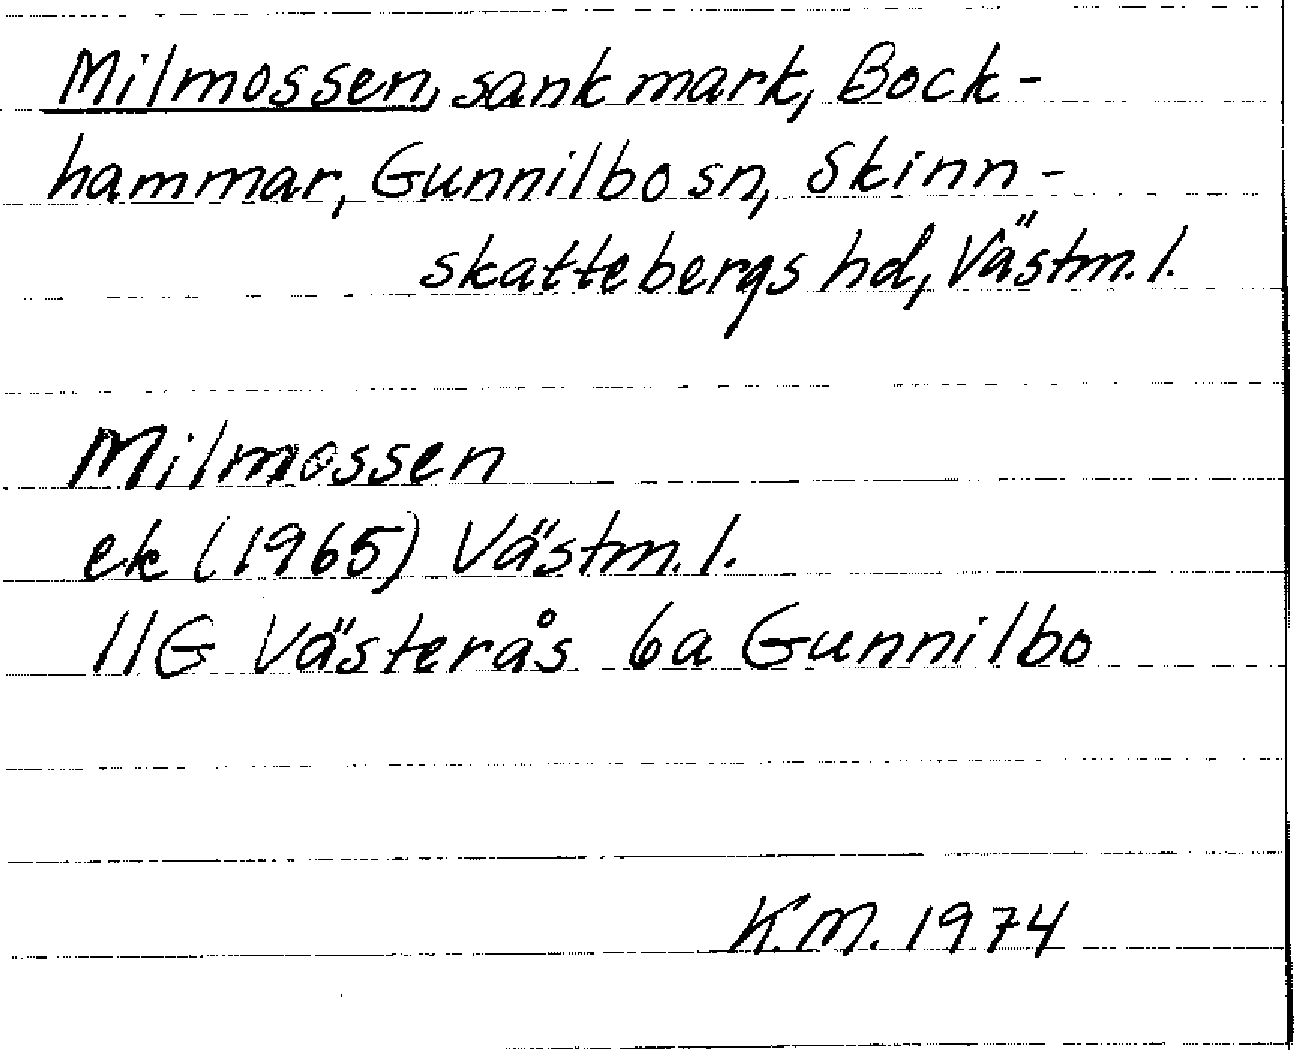 Milmossen, sank mark, Bock-
hammar, Gunnilbo sn, Skinn-
skattebergs hd, Västm. l.
Milmossen
ek (1965) Västm. l.
11G Västerås 6a Gunnilbo
K.M. 1974